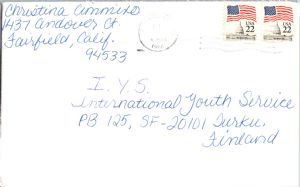 Christina Cimmixo
1437 Andover Ct
Fairfield, Calif.
94533
USA
22
USA
22
I. Y. S.
International Youth Service
PB 125, SF-20101 Turku.
Finland